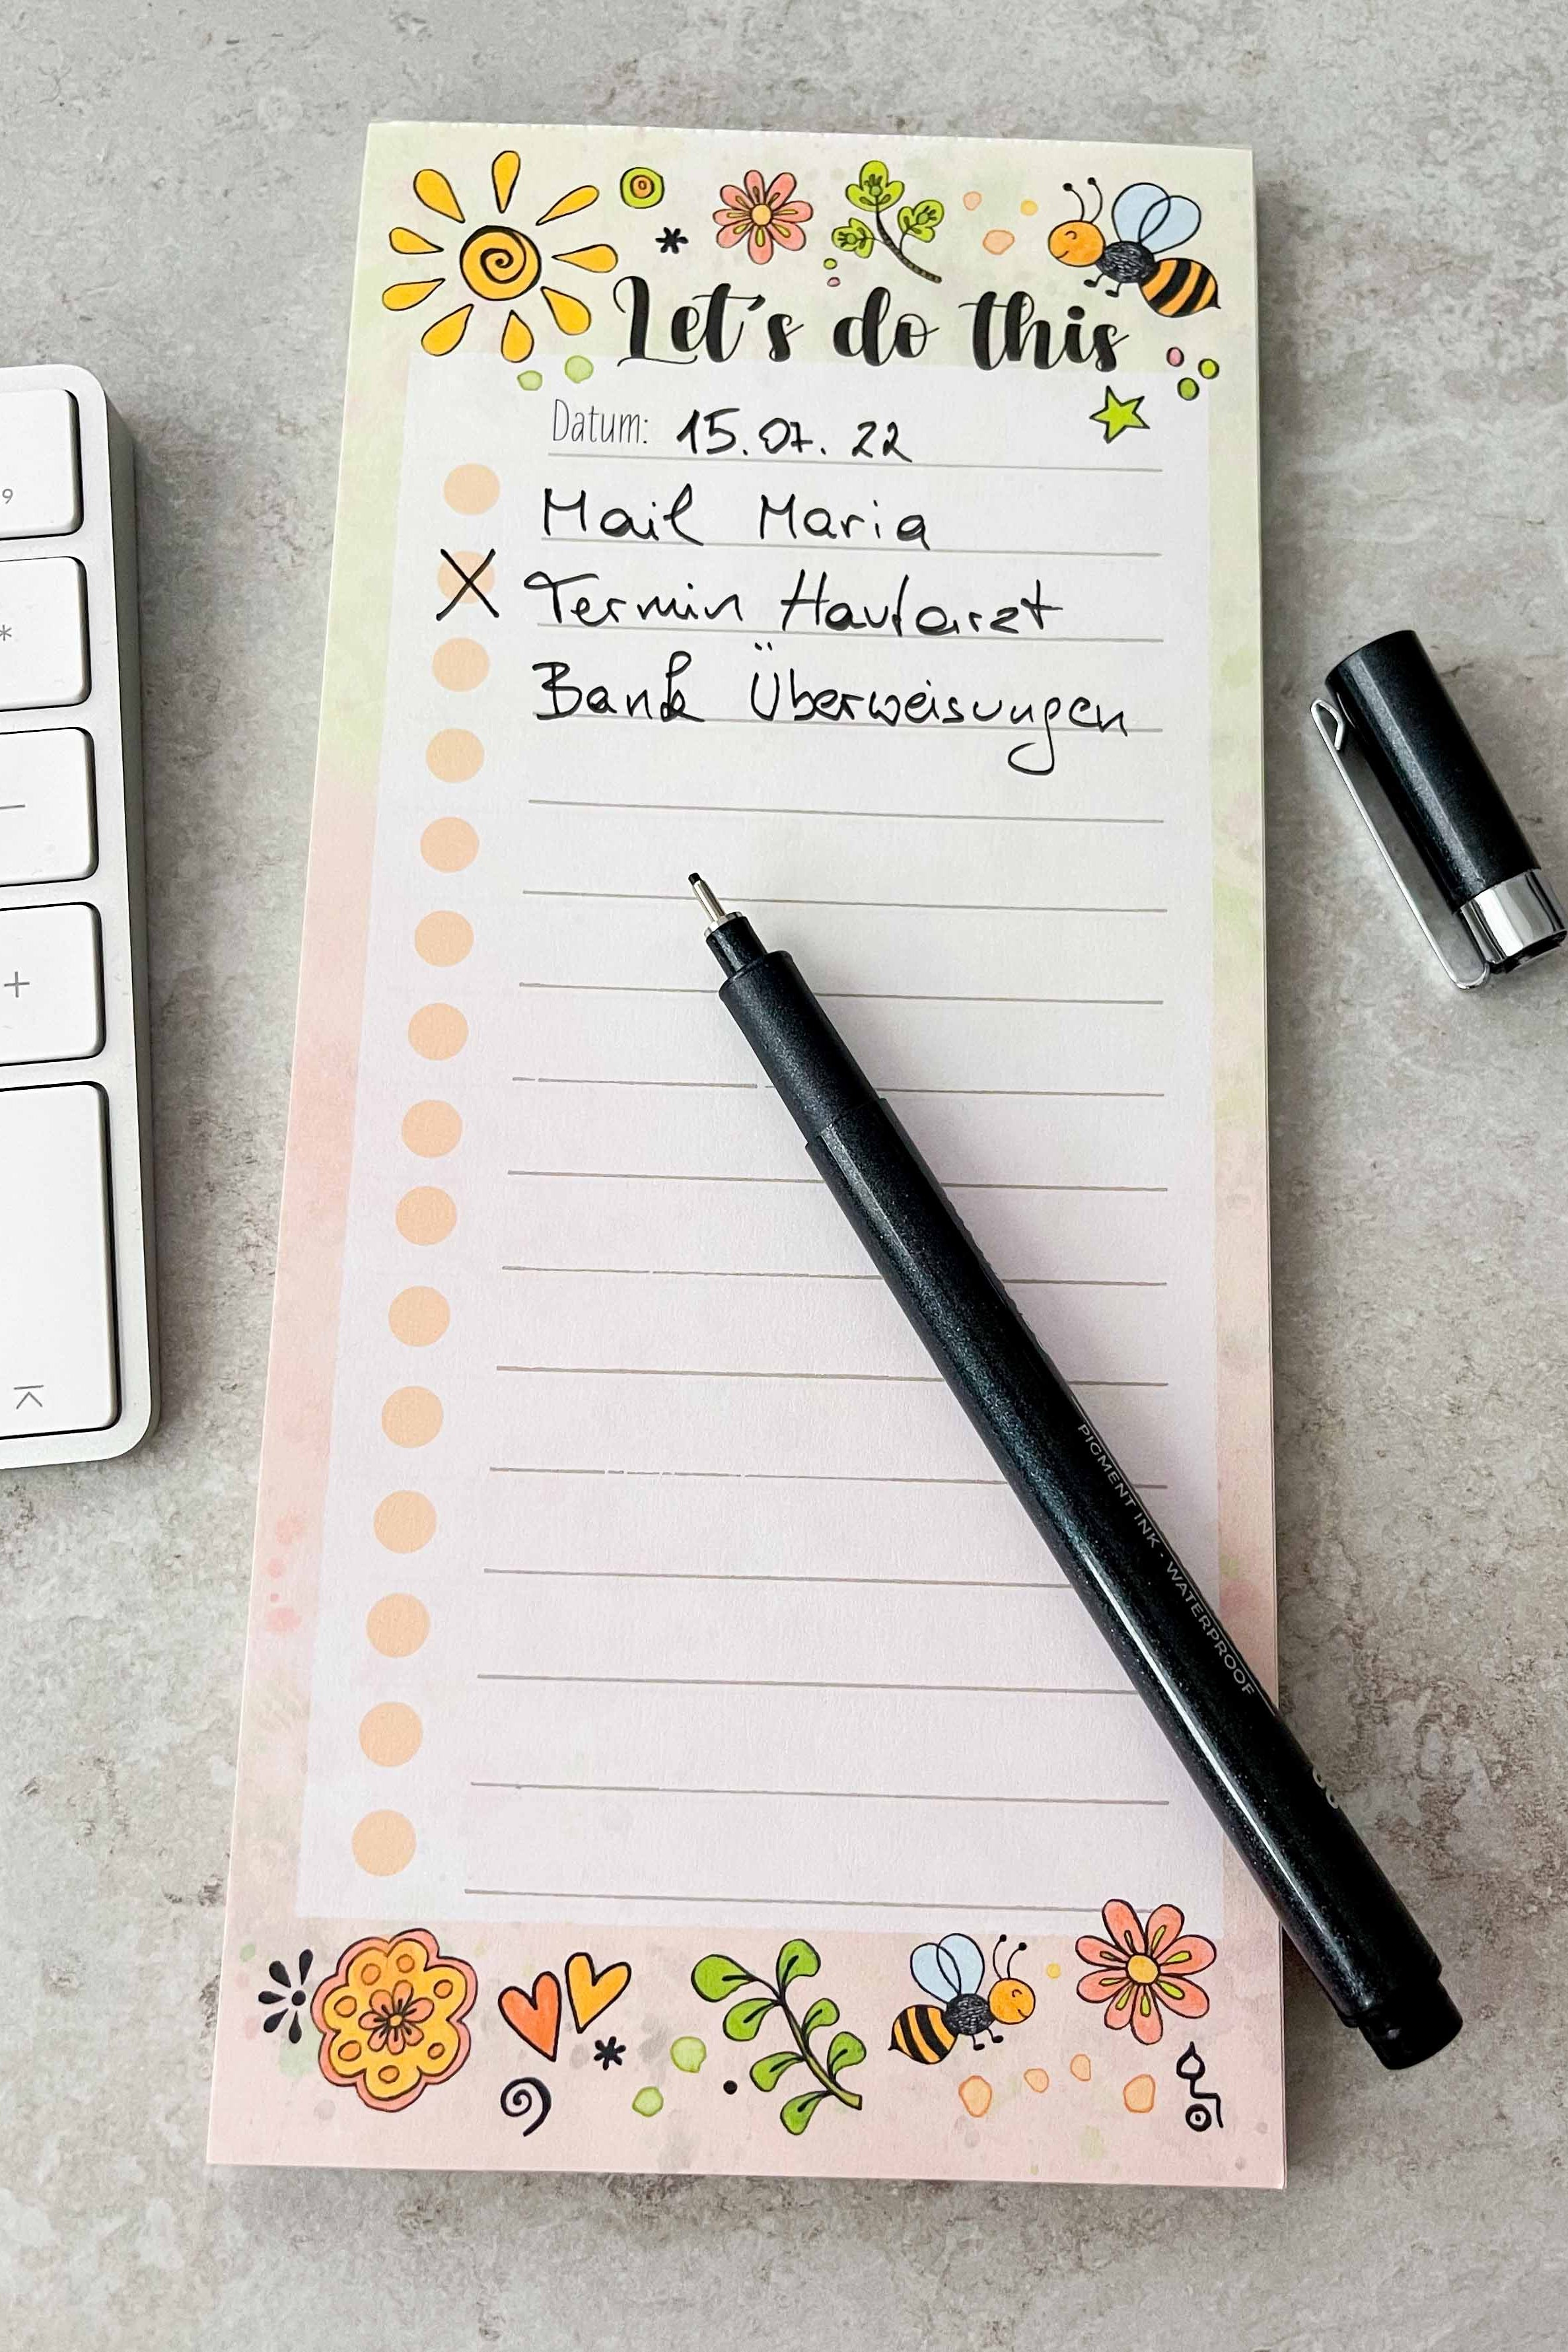 Let's do this
Datum: 15.07.22
Mail Maria
X Termin Hautarzt
Bank Überweisungen
PIGMENT INK · WATERPROOF
9
*
–
+